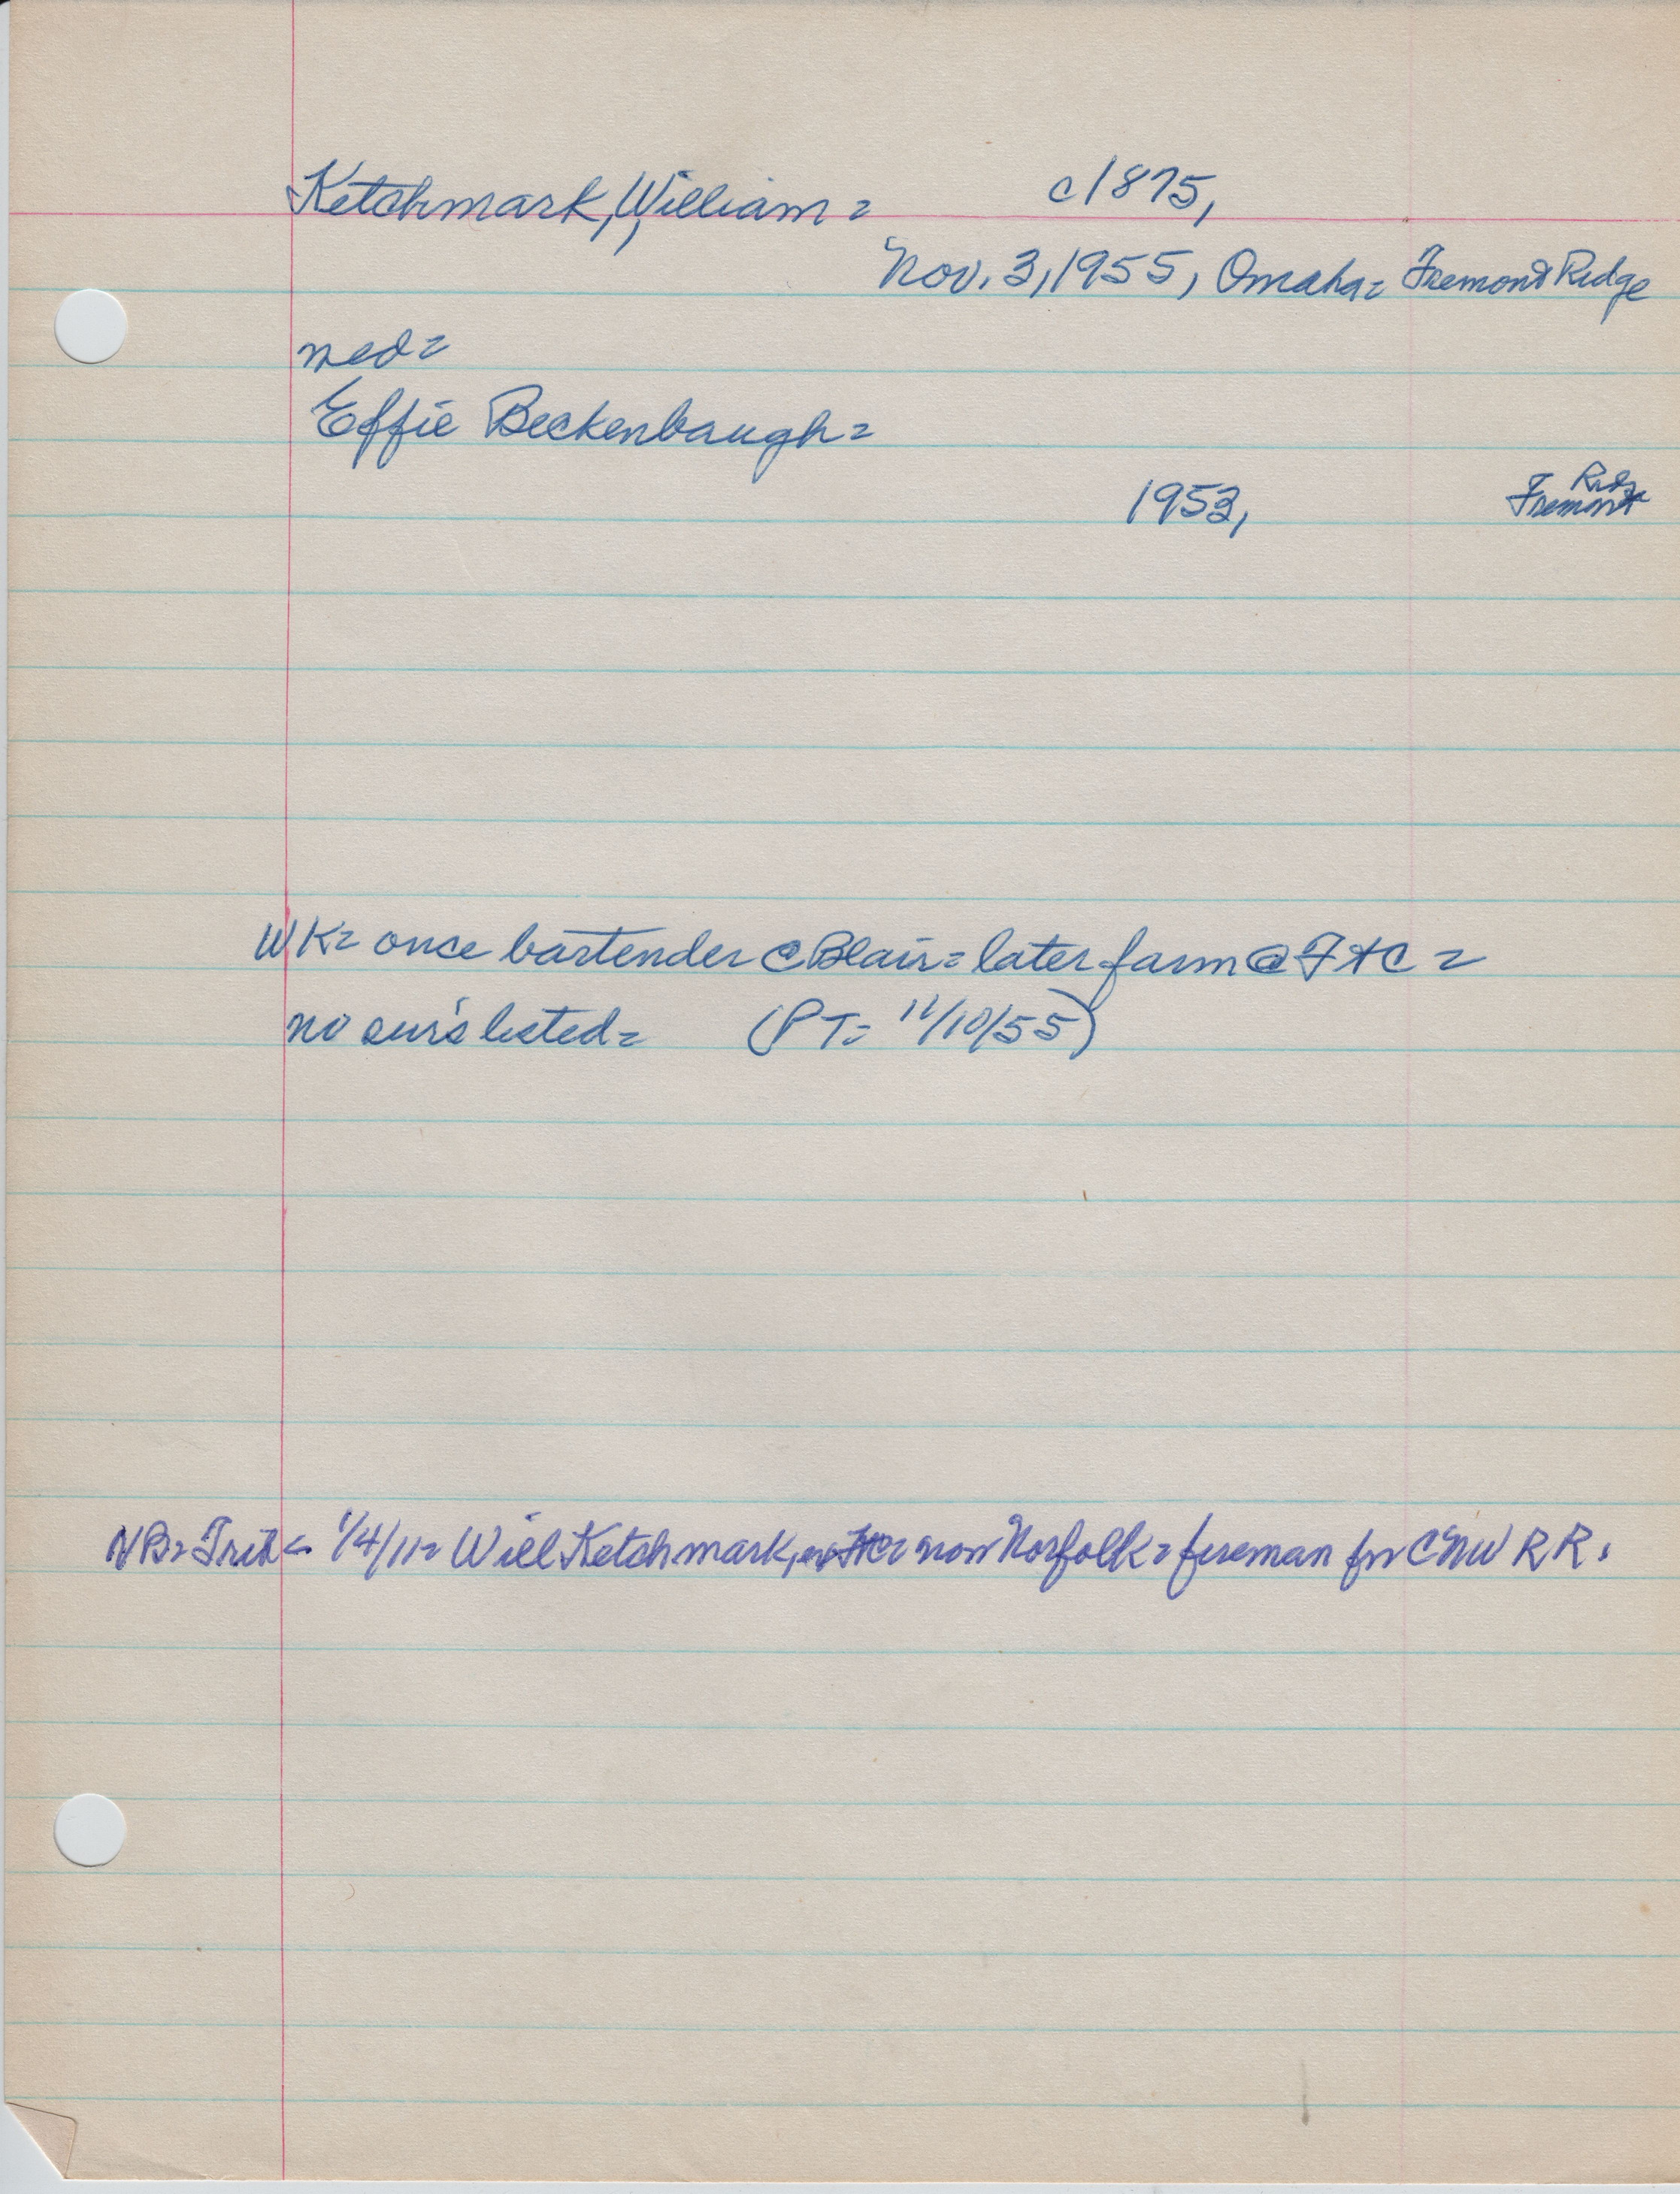 Ketchmark, William = c1875,
Nov. 3, 1955, Omaha = Fremont Ridge
med =
Effie Beckenbaugh =
1953, Fremont Ridge
WK = once bartender @ Blair = later farm @ FtC =
no sur's listed = (PT = 11/10/55)
NB = Trib = 1/4/11 = Will Ketchmark, ex FtC = now Norfolk = fireman for CNW RR.